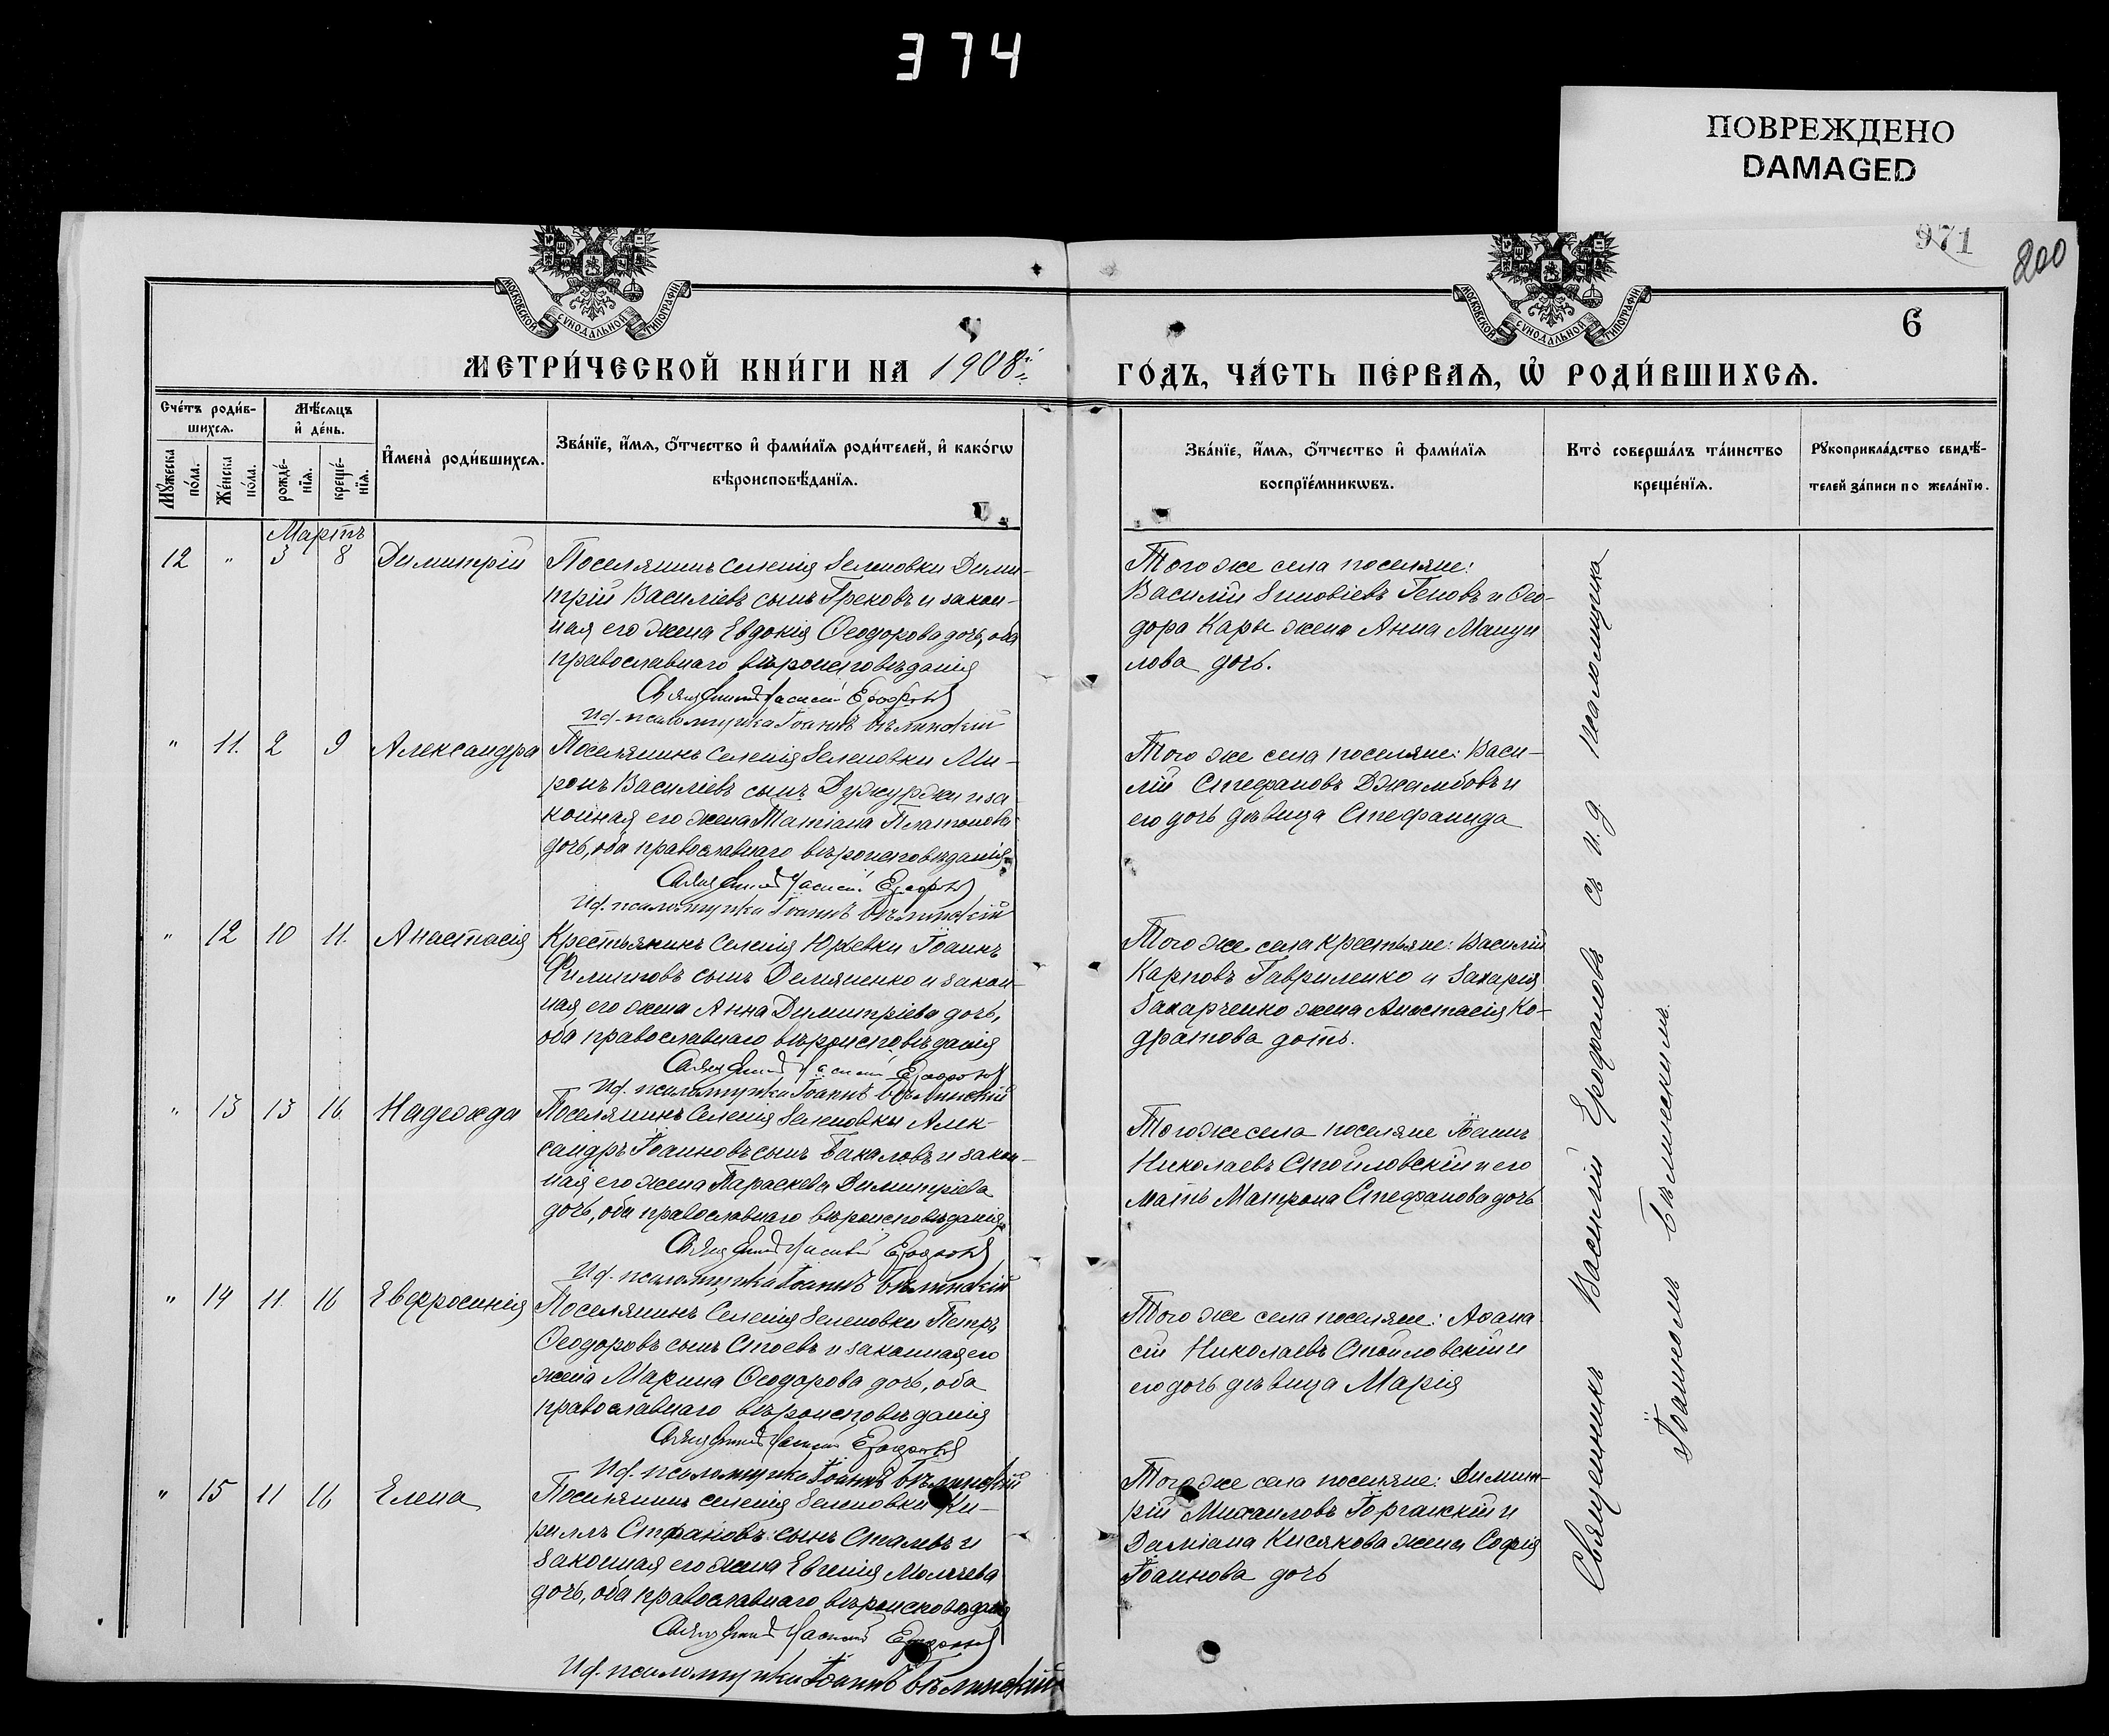 374
ПОВРЕЖДЕНО
DAMAGED
971
200
МОСКОВСКОЙ СѴНОДАЛЬНОЙ ТИПОГРАФІИ
МОСКОВСКОЙ СѴНОДАЛЬНОЙ ТИПОГРАФІИ
6
МЕТРИ́ЧЕСКОЙ КНИ́ГИ НА 1908й
ГО́ДЪ, ЧА́СТЬ ПЕ́РВАѦ, Ѡ҆ РОДИ́ВШИХСѦ.
Сче́тъ роди́в-
шихсѧ.
Мꙋ́жеска по́ла.
Же́нска по́ла.
Мѣ́сѧцъ
и҆ де́нь.
рожде́-
нїѧ.
креще́-
нїѧ.
И҆мена̀ роди́вшихсѧ.
Зва́нїе, и҆́мѧ, ѻ҆́тчество и҆ фами́лїѧ роди́телей, и҆ како́гѡ
вѣроисповѣ́данїѧ.
Зва́нїе, и҆́мѧ, ѻ҆́тчество и҆ фами́лїѧ
воспрїе́мникѡвъ.
Кто̀ соверша́лъ та́инство
креще́нїѧ.
Рꙋкоприкла́дство свидѣ́-
телей за́писи по жела́нїю.
Мартъ
12 " 3 8 Димитрій
Поселянинъ селенія Зеленовки Дими-
трій Василіевъ сынъ Грековъ и закон-
ная его жена Евдокія Ѳеодорова дочь, оба
православнаго вѣроисповѣданія
Священникъ Василій Ерофаловъ
И.д. псаломщика Іоаннъ Бѣлинскій
Того же села поселяне:
Василій Зиновіевъ Геновъ и Ѳео-
дора Кары жена Анна Мануи
лова дочь.
" 11. 2 9 Александра
Поселянинъ селенія Зеленовки Ми-
ронъ Василіевъ сынъ Дужурджи и за
конная его жена Татіана Платонова
дочь, оба православнаго вѣроисповѣданія
Священникъ Василій Ерофаловъ
И.д. псаломщика Іоаннъ Бѣлинскій
Того же села поселяне: Васи-
лій Стефановъ Джамбовъ и
его дочь дѣвица Стефанида
" 12 10 11. Анастасія
Крестьянинъ селенія Юрьевки Іоаннъ
Филипповъ сынъ Демяненко и закон-
ная его жена Анна Димитріева дочь,
оба православнаго вѣроисповѣданія
Священникъ Василій Ерофаловъ
И.д. псаломщика Іоаннъ Бѣлинскій
Того же села крестьяне: Василій
Карповъ Гавриленко и Захарія
Захарченко жена Анастасія Ко-
дратова дочь.
" 13 13 16 Надежда
Поселянинъ селенія Зеленовки Алек-
сандръ Іоанновъ сынъ Бакаловъ и закон-
ная его жена Параскева Димитріева
дочь, оба православнаго вѣроисповѣданія
Священникъ Василій Ерофаловъ
И.д. псаломщика Іоаннъ Бѣлинскій
Того же села поселяне Іоаннъ
Николаевъ Стойловскій и его
мать Матрона Стефанова дочь
" 14 11. 16 Евфросинія
Поселянинъ селенія Зеленовки Петръ
Ѳеодоровъ сынъ Стоевъ и законная его
жена Марина Ѳеодорова дочь, оба
православнаго вѣроисповѣданія
Священникъ Василій Ерофаловъ
И.д. псаломщика Іоаннъ Бѣлинскій
Того же села поселяне: Аѳана
сій Николаевъ Стойловскій и
его дочь дѣвица Марія
" 15 11 16 Елена
Поселянинъ селенія Зеленовки Ки-
риллъ Стефановъ сынъ и
законная его жена Евгенія
дочь, оба православнаго вѣроисповѣданія
Священникъ Василій Ерофаловъ
И.д. псаломщика Іоаннъ Бѣлинскій
Того же села поселяне: Димит-
рій Михаиловъ и
Даміана Кисякова жена Софія
Іоаннова дочь
Священникъ Василій Ерофаловъ съ и.д. псаломщика
Іоанномъ Бѣлинскимъ.